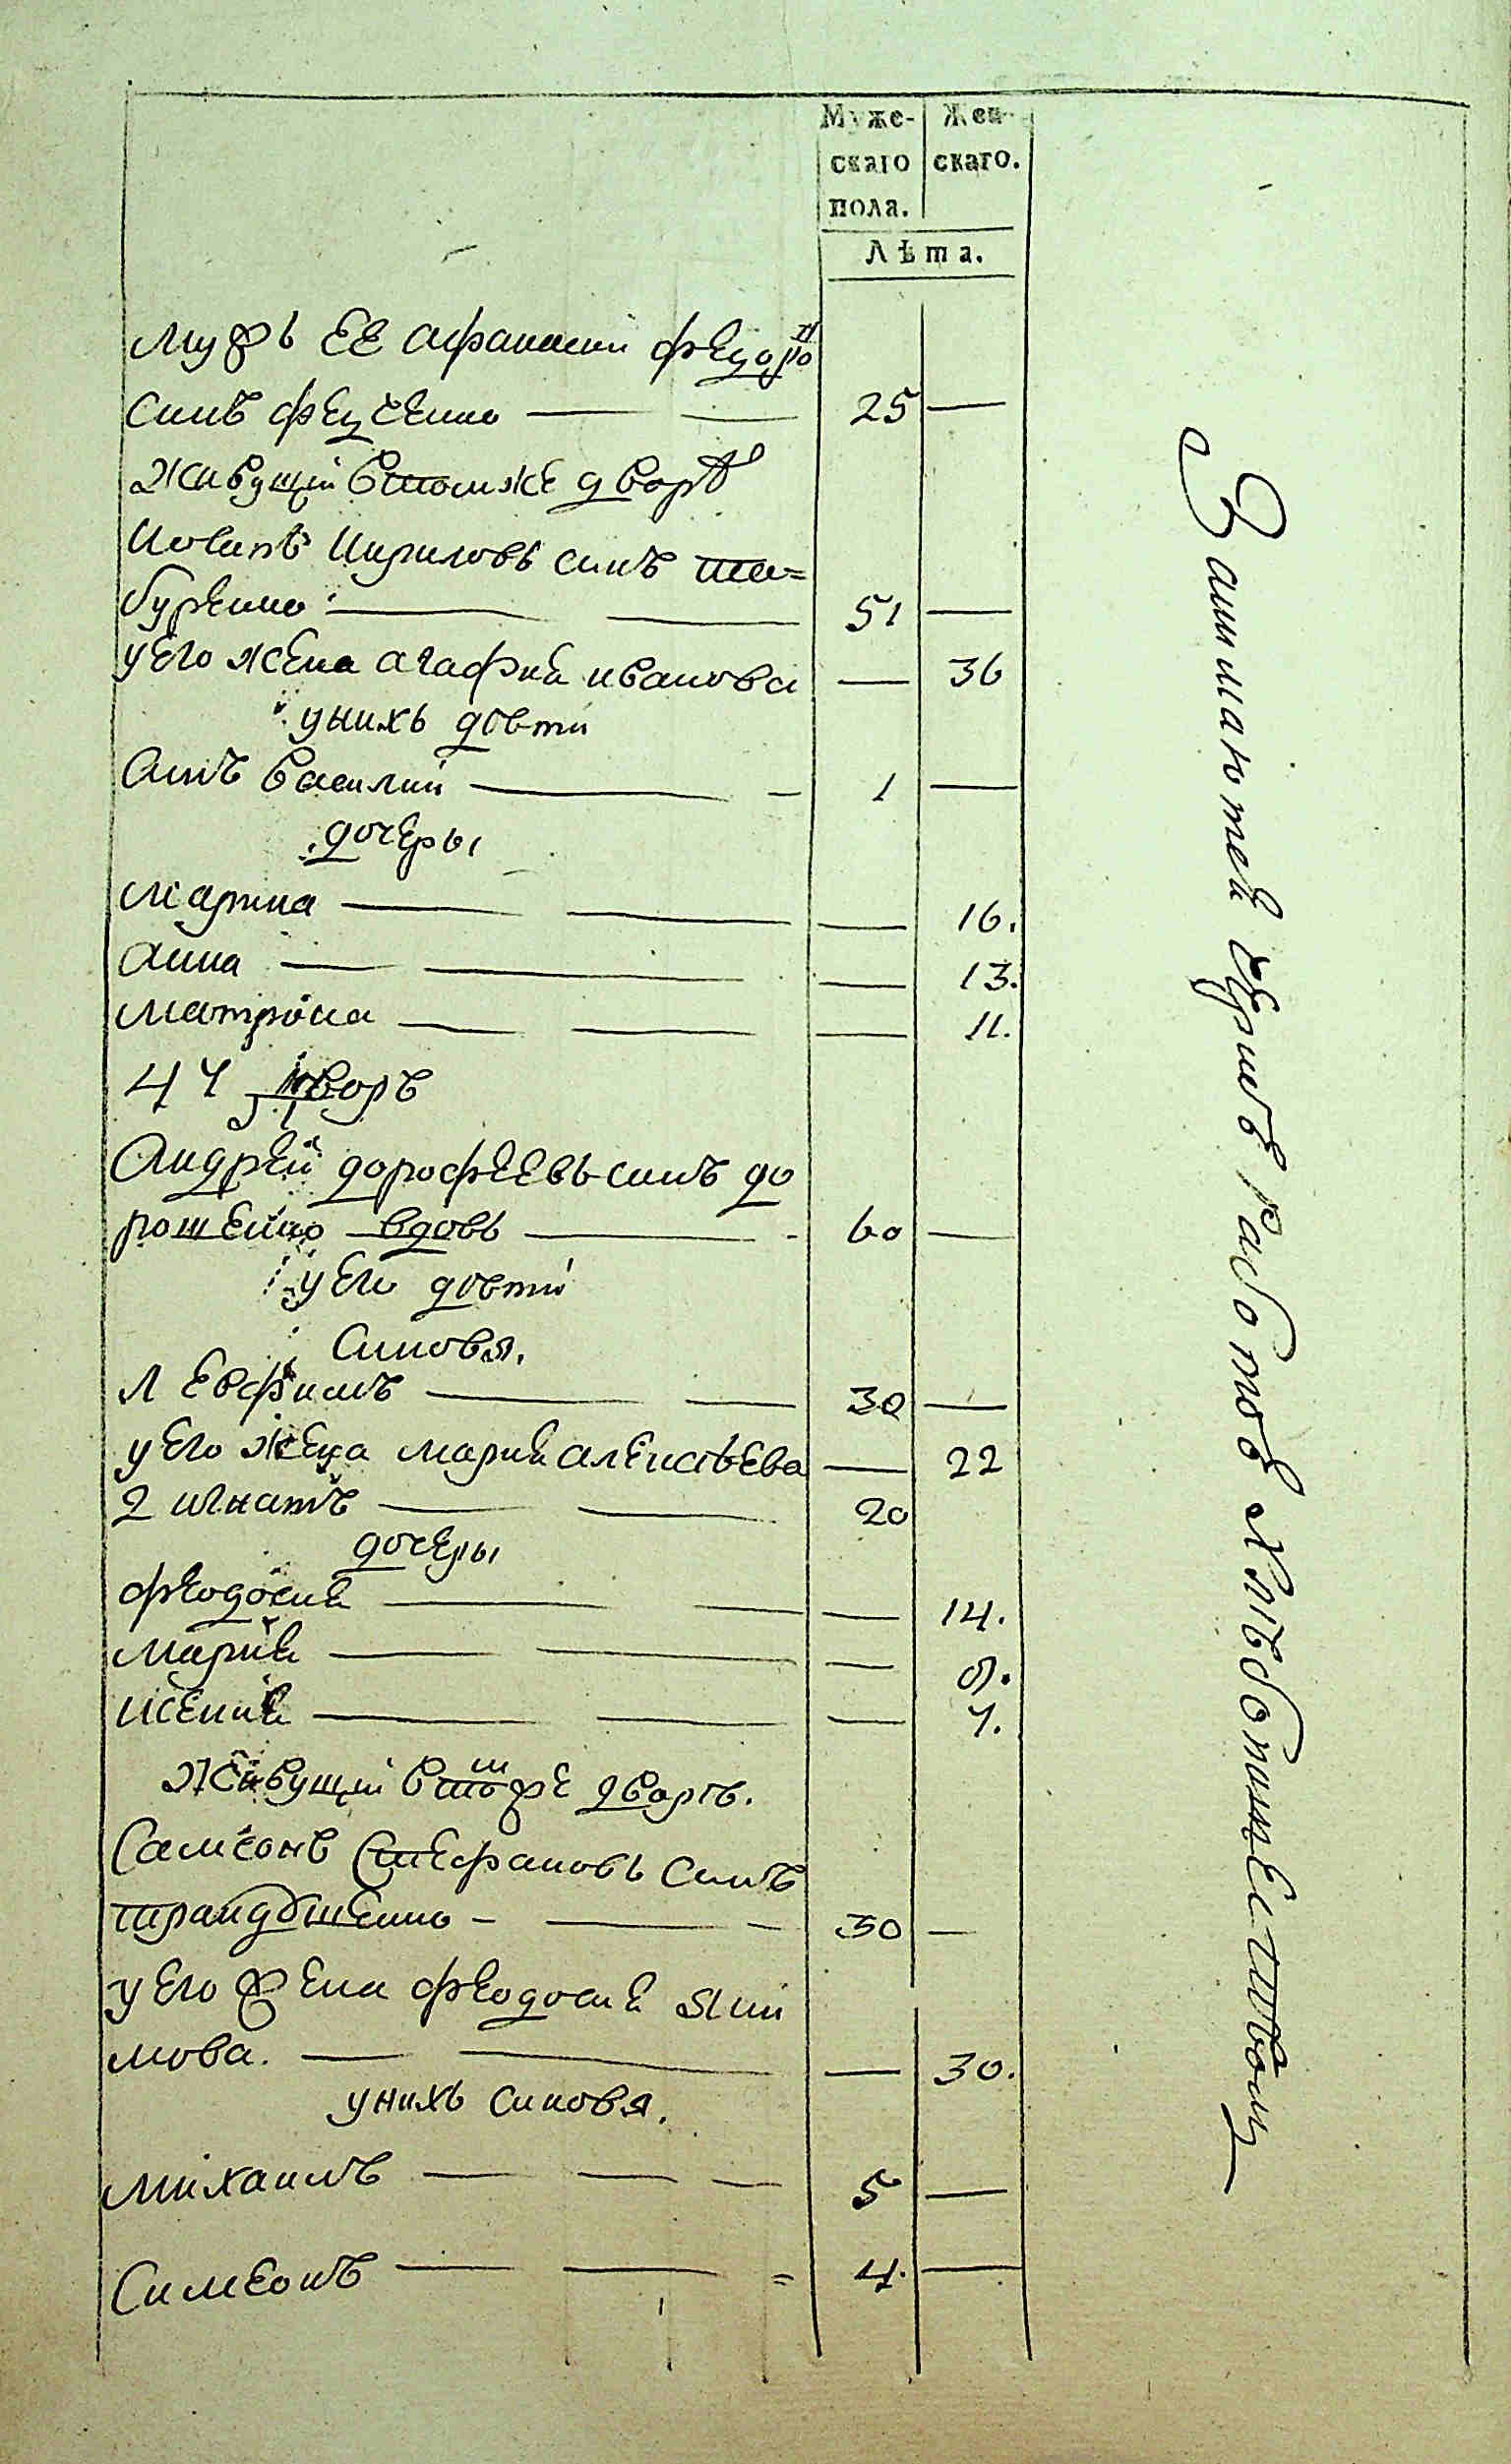 Муже- Жен-
скаго скаго.
пола.
Лѣта.
Мужъ ее Афанасий Федоро
синъ Федченко — — 25 —
Живущій втомже дворѣ
Иосипъ Кириловъ синъ Ша=
буренко — — 51 —
у его жена Агафия Иванова — 36
у нихъ дѣти
Синъ Василий — — 1 —
дочеры
Марина — — — 16.
Анна — — — 13.
Матрона — — — 11.
47 дворъ
Андрей Дорофеевъ синъ До
рошенко вдовъ — - 60 —
у его дѣти
Синовя.
1 Евфимъ — — 30 —
у его жена Мария Алексѣева — 22
2 Игнатъ — — 20
дочеры
Феодосия — — — 14.
Мария — — — 8.
Ксения — — — 7.
Живущій втомже дворѣ.
Самсонъ Стефановъ Синъ
Трандушенко - — - 30 —
у его жена Феодосия Яки
мова. — — — 30.
у нихъ синовя.
Михаилъ — — — 5 —
Симеонъ — — = 4. —
Занимаются обще работою хлѣбопашествомъ